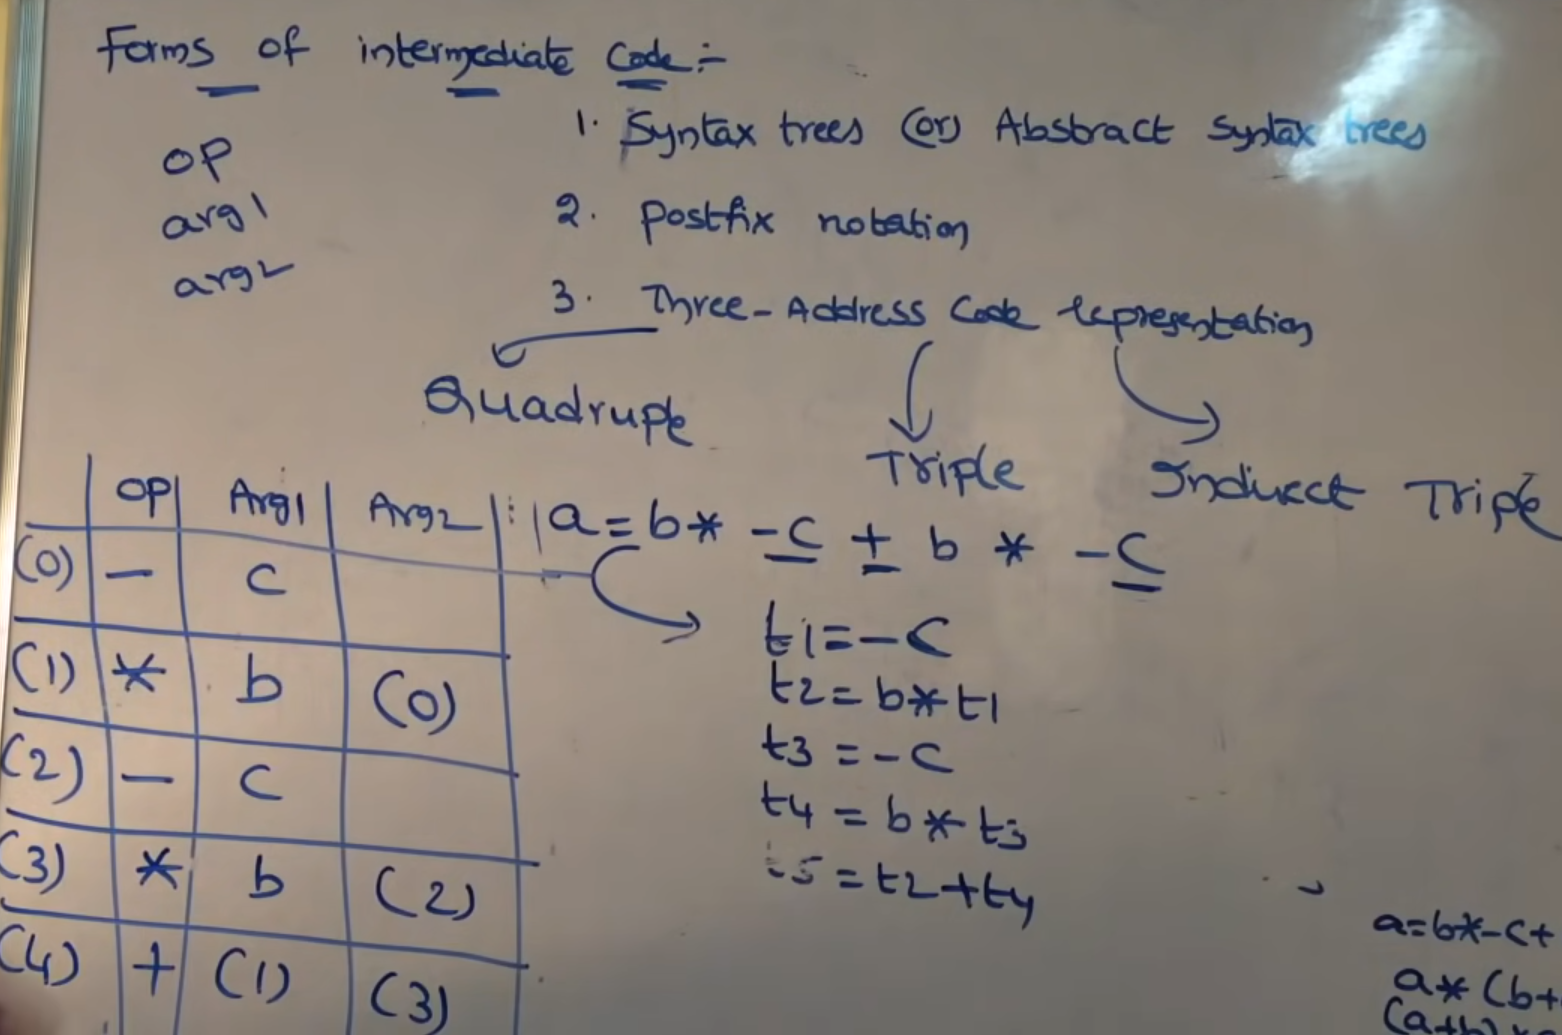 Forms of intermediate Code:-
1. Syntax trees (or) Abstract Syntax trees
OP
arg1
arg2
2. Postfix notation
3. Three-Address Code representation
Quadruple
Triple
Indirect Triple
OP Arg1 Arg2
(0) - c
(1) * b (0)
(2) - c
(3) * b (2)
(4) + (1) (3)
a = b * -c + b * -c
t1 = -c
t2 = b * t1
t3 = -c
t4 = b * t3
t5 = t2 + t4
a=b*-c+
a* (b+
(a+b)